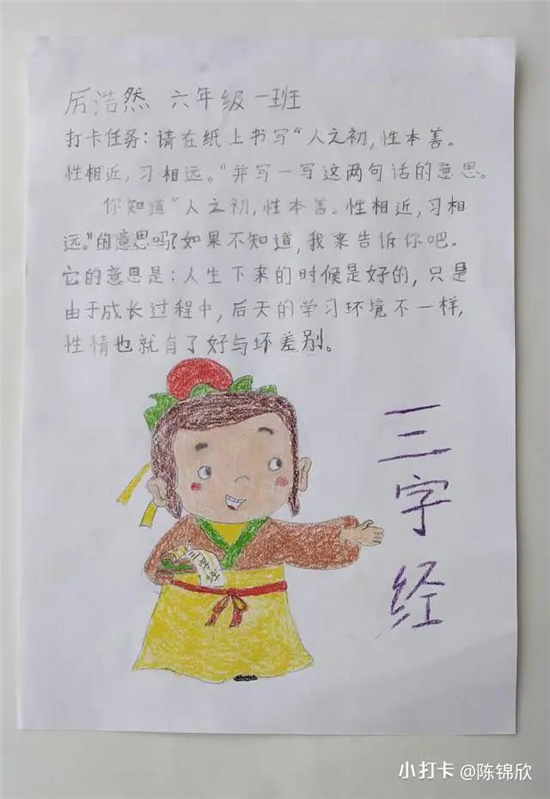 厉浩然 六年级一班
打卡任务：请在纸上书写“人之初，性本善。
性相近，习相远。”并写一写这两句话的意思。
你知道“人之初，性本善。性相近，习相
远。”的意思吗？如果不知道，我来告诉你吧。
它的意思是：人生下来的时候是好的，只是
由于成长过程中，后天的学习环境不一样，
性情也就有了好与坏差别。
三字经
三字经
小打卡 @陈锦欣